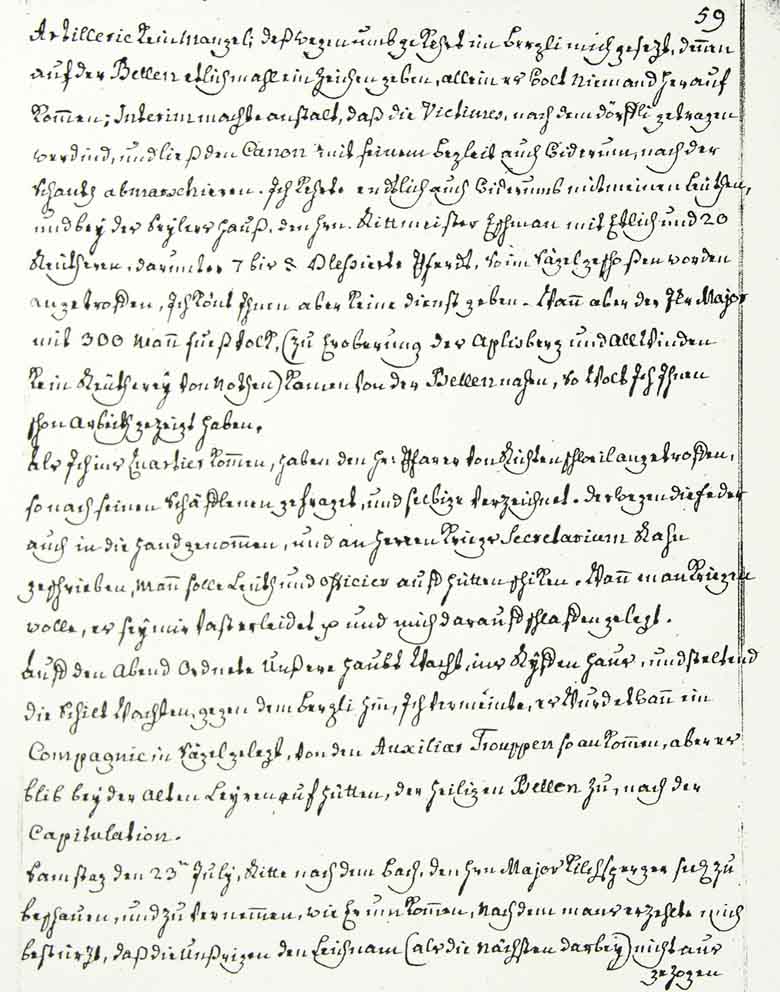 59
Artillerie kein Mangel; deßwegen umbgekehrt im bergli mich gesezt, dennen
auf der Bellen etlich mahl ein Zeichen geben, allein es wolt Niemand herauf
kom̄en; Interim machte anstalt, daß die Victimes, nach dem dörffli getragen
werdind, und ließ den Canon mit seinem begleit auch widerum, nach der
Schantz abmarschieren. Ich kehrte endtlich auch widerumb mit meinen Leüthen,
und bey der Seylers hauß, den hrn. Rittmeister Eschman mit Etlich und 20
Reütheren, darunter 7 bis 8 Blessierte Pferdt, so im Säzel geschoßen worden
angetroffen, Ich könt Ihnen aber keine dienst geben. Wan̄ aber der Hr Major
mit 300 Man̄ fueß Volk, (zu Eroberung der Aplisberg und All Winden
kein Reütherey von Nöthen) kamen von der Bellen nahen, so wolt Ich Ihnen
schon Arbeith gezeigt haben.
Als Ich ins Quartier kom̄en, haben den Hr: Pfarer von Richtenschweil angetroffen,
so nach seinen Schäfflenen gefraget, und selbige verzeichnet. derwegen die feder
auch in die hand genom̄en, und an herren Kriegs Secretarium Rahn
geschrieben, Man̄ solle Leüth und Officier auff hütten schiken. Wan̄ man Kriegen
wolle, es sey mir vast erleidet und mich darauff schlaffen gelegt.
Auff den Abend Ordnete Unßere haubt Wacht, ins Ryffen haus, und stellend
die Schilt Wachten, gegen dem bergli hin, Ich vermeinte, es wurd etwan̄ ein
Compagnie in Säzel gelegt, von den Auxiliar Trouppen so ankom̄en, aber es
blib bey der alten Leyren auf hütten, der heiligen Bellen zu, nach der
Capitulation.
Samstag den 23ten July, Ritte nach dem bach, den hrn Major Kilchsperger seel. zu
beschauen, und zu vernemmen, wie Er umkom̄en, Nach dem mans erzehlte mich
bestürzt, daß die Unßrigen den Leichnam (als die Nächsten darbey) nicht aus
gezogen